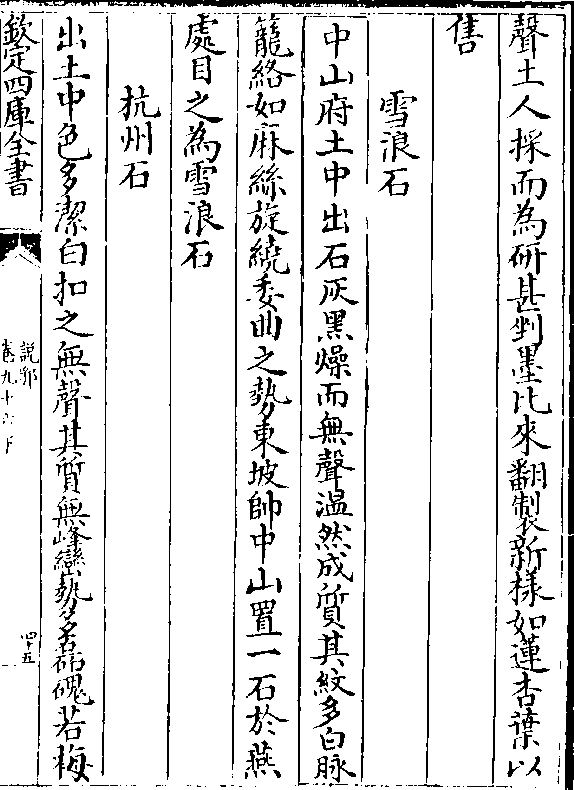 聲土人採而為研甚剉墨比來翻製新様如蓮杏葉以
售
雪浪石
中山府土中出石灰黒燥而無聲温然成質其紋多白脉
籠絡如麻絲旋繞委曲之勢東坡帥中山置一石於燕
處目之為雪浪石
杭州石
出土中色多潔白扣之無聲其質無峰巒勢多磊磈若梅
欽定四庫全書
説郛
卷九十六下
四十五